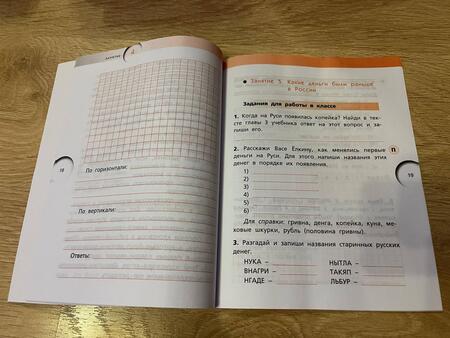 ЗАНЯТИЕ 4
По горизонтали:
По вертикали:
Ответы:
18
Занятие 5. Какие деньги были раньше
в России
Задания для работы в классе
1. Когда на Руси появилась копейка? Найди в тек-
сте главы 3 учебника ответ на этот вопрос и за-
пиши его.
2. Расскажи Васе Ёлкину, как менялись первые
деньги на Руси. Для этого напиши названия этих
денег в порядке их появления.
П
1)
2)
3)
4)
5)
6)
Для справки: гривна, денга, копейка, куна, ме-
ховые шкурки, рубль (половина гривны).
3. Разгадай и запиши названия старинных русских
денег.
НУКА –
НЫТЛА –
ВНАГРИ –
ТАКЯП –
НГАДЕ –
ЛЬБУР –
19